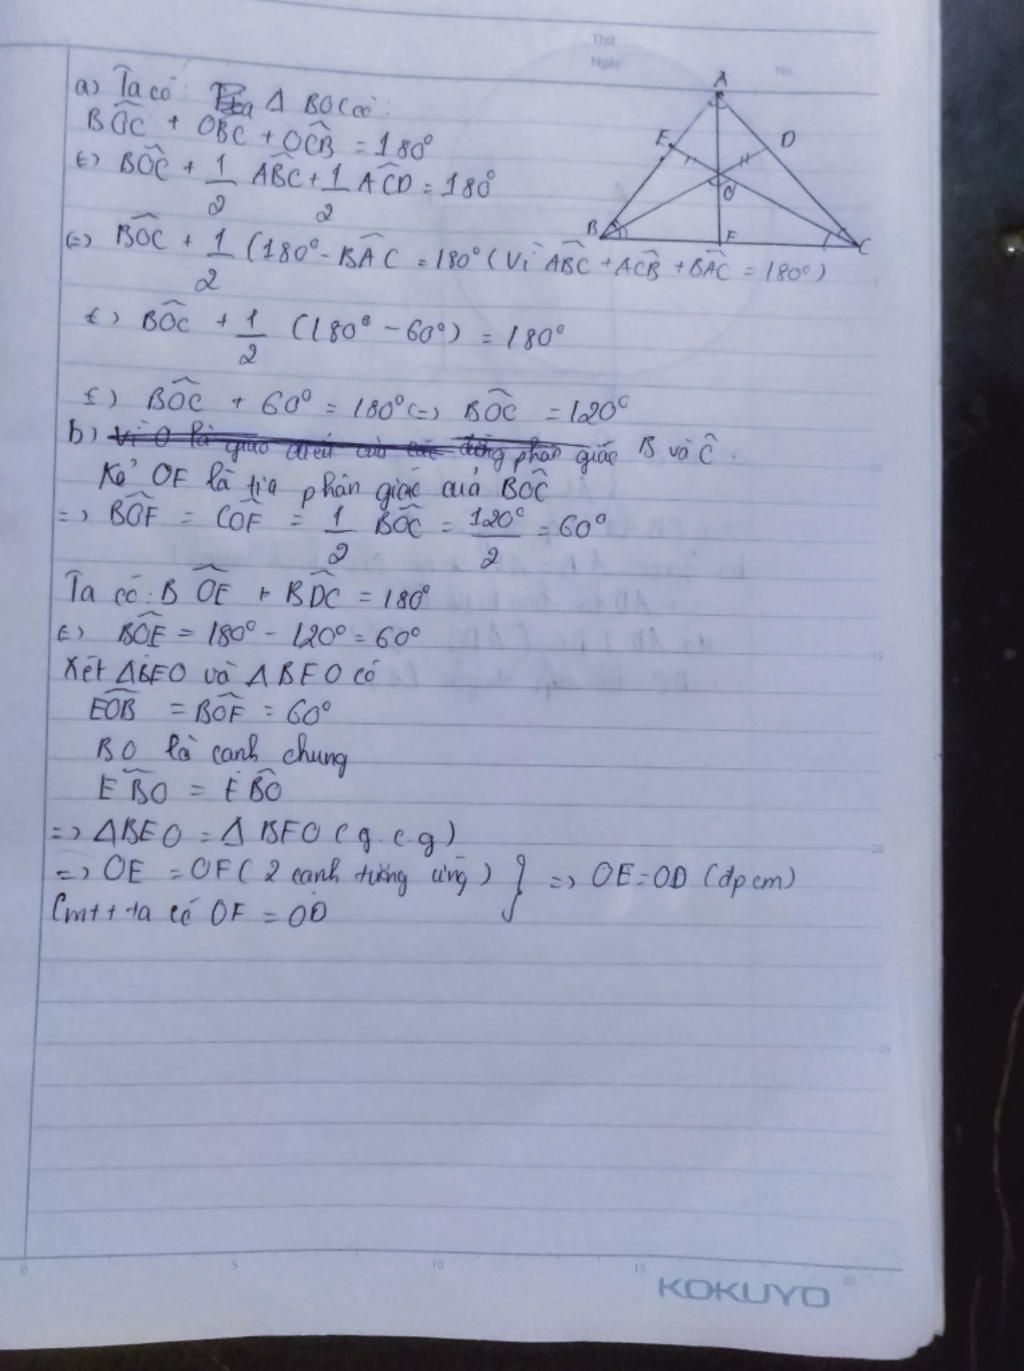 Thứ
Ngày
No.
a) Ta có: Δ BOC có:
BÔC + OB̂C + OĈB = 180°
(=) BÔC + 1/2 AB̂C + 1/2 AĈD = 180°
(=) BÔC + 1/2 (180° - BÂC = 180° (Vì AB̂C + AĈB + BÂC = 180°)
(=) BÔC + 1/2 (180° - 60°) = 180°
(=) BÔC + 60° = 180° (=) BÔC = 120°
b) Vì O là giao điểm của các đường phân giác B và Ĉ.
Kẻ OF là tia phân giác của BÔC
=) BÔF = CÔF = 1/2 BÔC = 120°/2 = 60°
Ta có: BÔE + BD̂C = 180°
(=) BÔE = 180° - 120° = 60°
Xét ΔBEO và ΔBFO có
EÔB = BÔF = 60°
BO là cạnh chung
EB̂O = FB̂O
=) ΔBEO = ΔBFO (g.c.g)
=) OE = OF (2 cạnh tương ứng) } =) OE = OD (đpcm)
Cmtt ta có OF = OD
A
E
D
O
B
F
C
5
10
15
20
25
0
5
10
15
20
KOKUYO